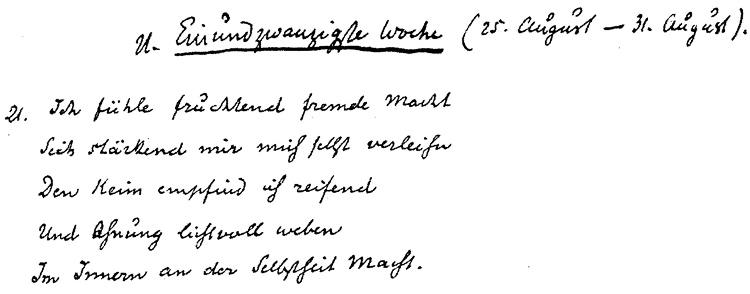 U. Einundzwanzigste Woche (25. August – 31. August).
21. Ich fühle fruchtend fremde Macht
Sich stärkend mir mich selbst verleihn
Den Keim empfind ich reifend
Und Ahnung lichtvoll weben
Im Innern an der Selbstheit Macht.